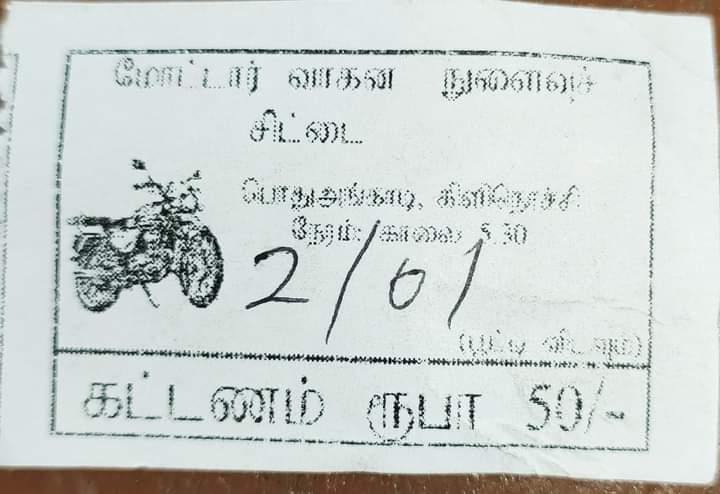 மோட்டார் வாகன நுளைவுச்
சிட்டை
பொதுஅங்காடி, கிளிநொச்சி
நேரம்: காலை 5.30
2/01
(பூட்டி விடவும்)
கட்டணம் ரூபா 50/-